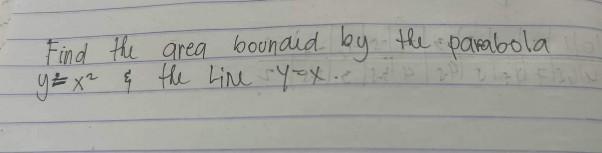 Find the area bounaid by the parabola
y = x² & the Line y=x.